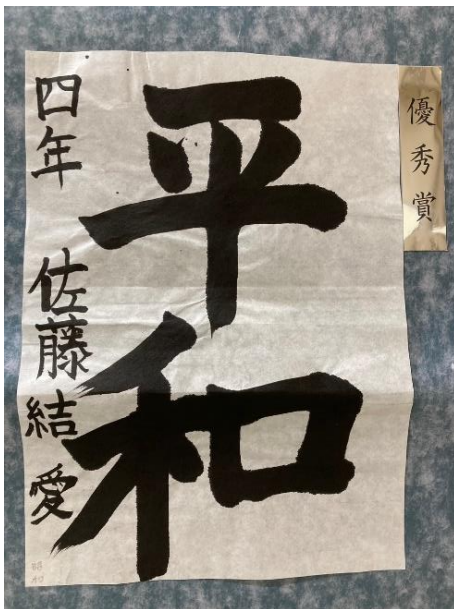 優秀賞
平和
四年 佐藤結愛